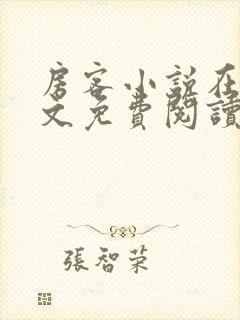 房客小說在
文免費閱讀
張智荣